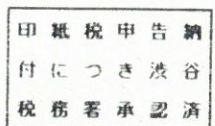 印紙税申告納
付につき渋谷
税務署承認済